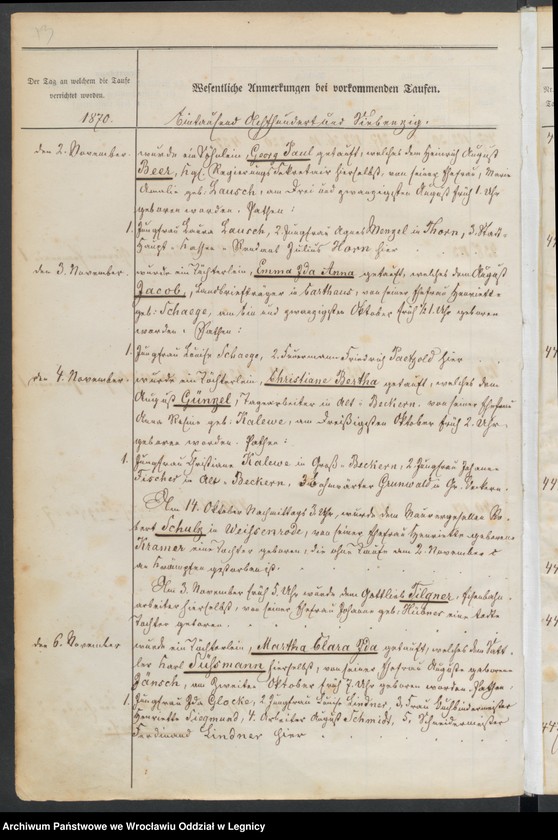 13
Der Tag an welchem die Taufe
verrichtet worden.
Wesentliche Anmerkungen bei vorkommenden Taufen.
1870.
Eintausend Achthundert und Siebenzig.
den 2. November.
wurde ein Söhnlein, Georg Paul getauft, welches dem Heinrich August
Beer, Kgl. Regierungs Sekretair hierselbst, von seiner Ehefrau, Marie
Amalie geb: Lausch, am Drei und zwanzigsten August früh 1 Uhr
geboren worden. Pathen:
1. Jungfrau Laura Lausch, 2. Jungfrau Agnes Mengel in Thorn, 3. Stadt-
Haupt-Kassen-Rendant Julius Horn hier
den 3. November.
wurde ein Töchterlein, Emma Ida Anna getauft, welches dem August
Jacob, Landbriefträger in Carthaus, von seiner Ehefrau Henriette
geb: Schaege, am Ein und zwanzigsten Oktober früh Uhr geboren
worden. Pathen:
1. Jungfrau Louise Schaege, 2. Feuermann Friedrich Paetzold hier
den 4. November.
wurde ein Töchterlein, Christiane Bertha getauft, welches dem
August Günzel, Tagearbeiter in Alt-Beckern, von seiner Ehefrau
Anna Rosine geb: Kalewe, am Dreißigsten Oktober früh 2. Uhr
geboren worden. Pathen:
1. Jungfrau Christiane Kalewe in Groß-Beckern, 2. Jungfrau Johanne
Fischer in Alt-Beckern, 3. Bahnwärter Grunwald in Gr. Beckern.
Am 14. Oktober Nachmittags 3 Uhr, wurde dem Maurergesellen Ro-
bert Schulz in Weissenrode, von seiner Ehefrau Henriette geborene
Kramer eine Tochter geboren, die ohne Taufe am 2. November
an Krämpfen gestorben ist.
Am 3. November früh 5. Uhr wurde dem Gottlieb Tilgner, Eisenbahn-
arbeiter hierselbst, von seiner Ehefrau Johanne geb: Hübner eine todte
Tochter geboren.
den 6. November
wurde ein Töchterlein, Martha Clara Ida getauft, welches dem Satt-
ler Karl Süssmann hierselbst, von seiner Ehefrau Auguste geborene
Jänsch, am Zweiten Oktober früh 7. Uhr geboren worden. Pathen:
1. Jungfrau Ida Glocke, 2. Jungfrau Louise Lindner, 3. Frau Buchbindermeister
Henriette Siegmund, 4. Arbeiter August Schmidt, 5. Schneidermeister
Ferdinand Lindner hier
Archiwum Państwowe we Wrocławiu Oddział w Legnicy